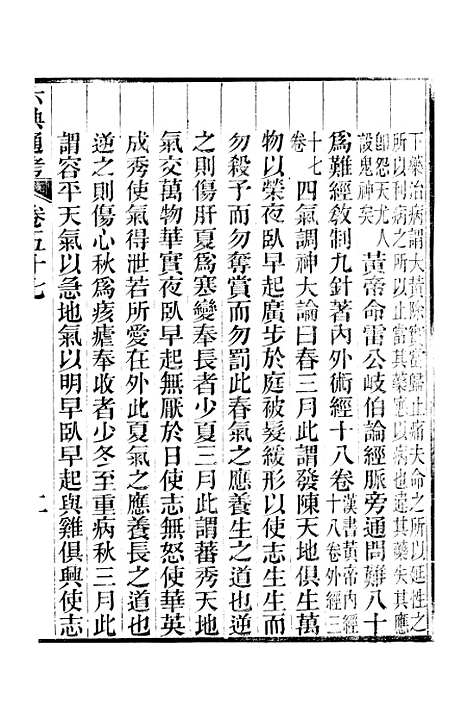 下藥治病謂大黃除實當歸止痛夫命之所以延性之
所以利病之所以止當其藥應以病也違其藥失其應
即怨天尤人
設鬼神矣
黃帝命雷公岐伯論經脈旁通問難八十
爲難經敘制九針著內外術經十八卷
漢書黃帝內經
十八卷外經三
十七
卷
四氣調神大論曰春三月此謂發陳天地俱生萬
物以榮夜臥早起廣步於庭被髮緩形以使志生生而
勿殺予而勿奪賞而勿罰此春氣之應養生之道也逆
之則傷肝夏爲寒變奉長者少夏三月此謂蕃秀天地
氣交萬物華實夜臥早起無厭於日使志無怒使華英
成秀使氣得泄若所愛在外此夏氣之應養長之道也
逆之則傷心秋爲痎瘧奉收者少冬至重病秋三月此
謂容平天氣以急地氣以明早臥早起與雞俱興使志
六典通考
卷五十七